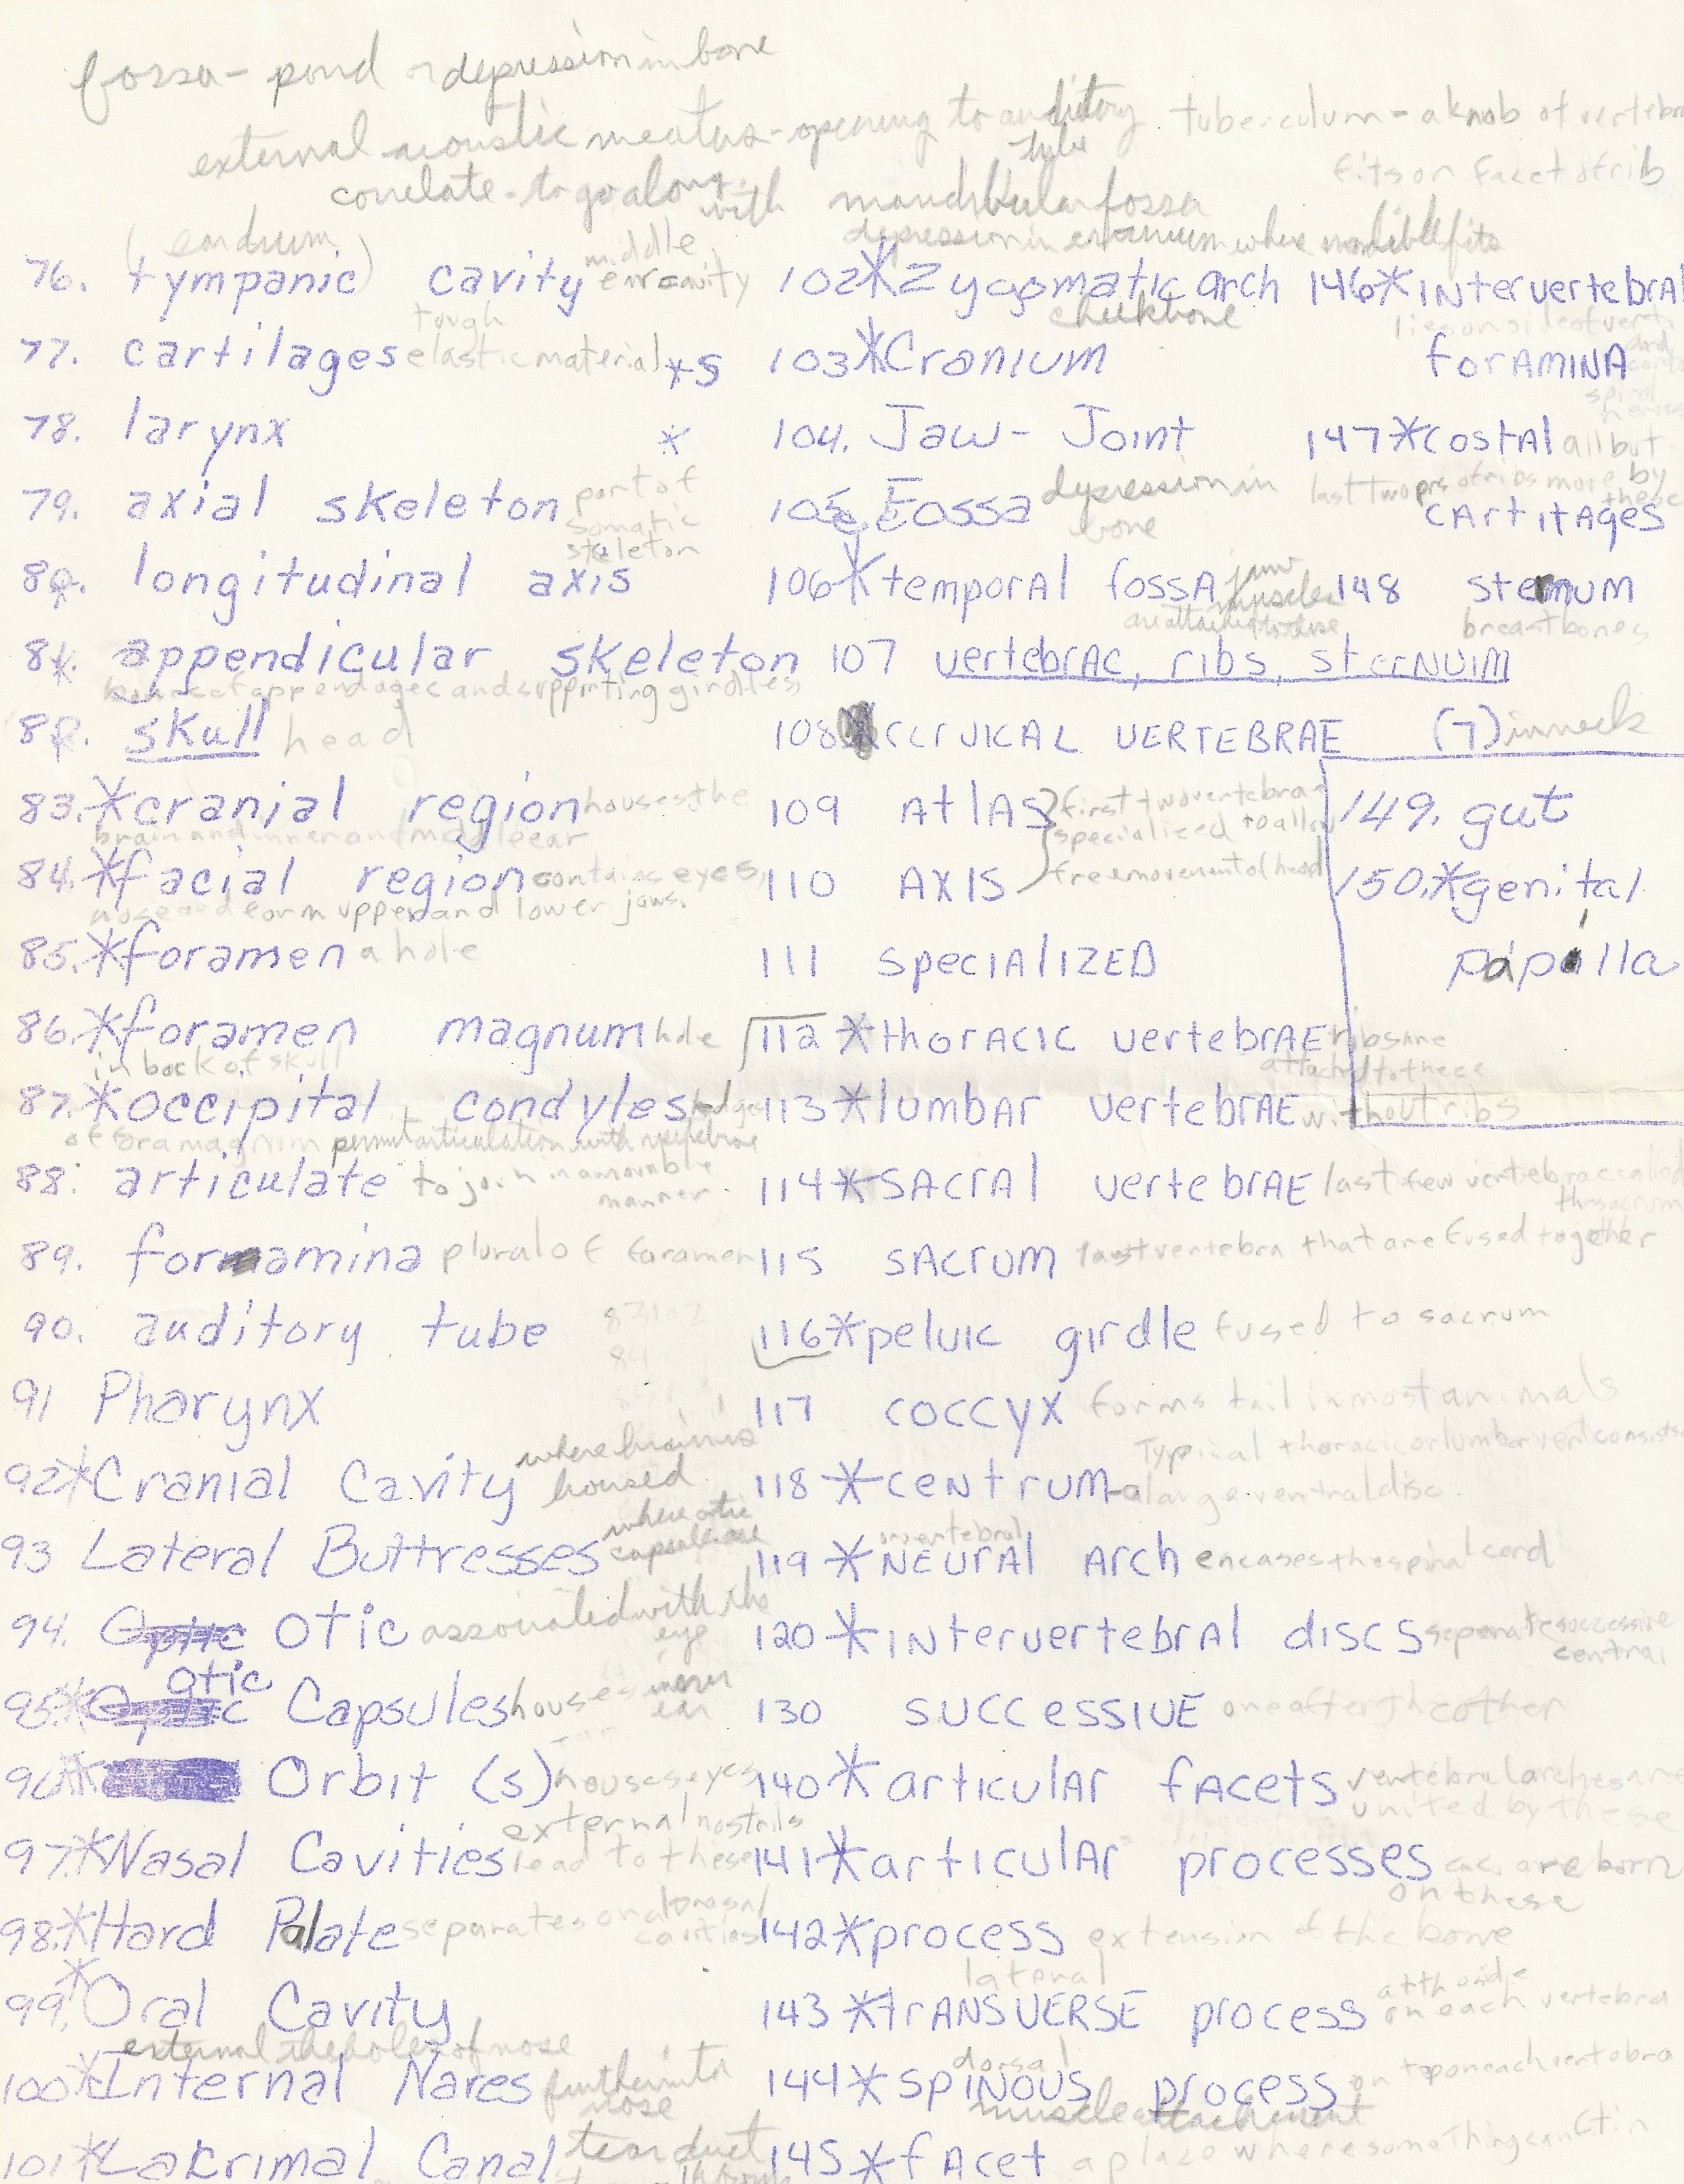 fossa - pond or depression in bone
external acoustic meatus - opening to auditory tube
correlate - to go along with
tuberculum - a knob of vertebra
fits on facet of rib
mandibular fossa
depression in cranium where mandible fits
(eardrum)
76. tympanic cavity middle ear cavity
77. cartilages tough elastic material *s
78. larynx *
79. axial skeleton part of somatic skeleton
80. longitudinal axis
81. appendicular skeleton
bones of appendages and supporting girdles
82. skull head
83. *cranial region houses the
brain and inner and middle ear
84. *facial region contains eyes,
nose and form upper and lower jaws.
85. *foramen a hole
86. *foramen magnum hole
in back of skull
87. *occipital condyles
of foramagnum permit articulation with vertebrae
88. articulate to join in a movable manner
89. formamina plural of foramen
90. auditory tube
91 Pharynx
92 *Cranial Cavity where brain is housed
93 Lateral Buttresses where otic capsules are
94. Optic Otic associated with the eye
95. * otic Capsules houses inner ear
96 * Orbit (s) houses eyes
97. *Nasal Cavities external nostrils lead to these
98. *Hard Palate separates oral to nasal cavities
99. *Oral Cavity
external the holes of nose
100 *Internal Nares further into nose
101 *Lacrimal Canal tear duct
102 *Zygomatic arch
cheekbone
103 *Cranium
104. Jaw-Joint
105. Fossa depression in bone
106 *temporal fossa jaw muscles
are attached to these
107 vertebrae, ribs, sternum
108 *cervical vertebrae (7) in neck
109 Atlas } first two vertebrae
specialized to allow
110 Axis free movement of head
111 specialized
112 *thoracic vertebrae ribs are
attached to these
113 *lumbar vertebrae without ribs
114 *sacral vertebrae last few vertebrae called the sacrum
115 sacrum last vertebra that are fused together
116 *pelvic girdle fused to sacrum
117 coccyx forms tail in most animals
Typical thoracic or lumbar vert consists
118 *centrum - a large ventral disc
or vertebral
119 *Neural Arch encases the spinal cord
120 *intervertebral discs separate successive central
130 successive one after the other
140 *articular facets vertebral arches are
united by these
141 *articular processes are born
on these
142 *process extension of the bone
lateral
143 *transverse process on each vertebra
dorsal
144 *spinous process on top on each vertebra
muscle attachment
145 *facet a place where something can fit in
146 *intervertebral
lies on side of vert
foramina
and
spinal nerves
147 *costal all but
last two prs of ribs more by these
cartilages
148 sternum
breastbones
149. gut
150. *genital
papilla